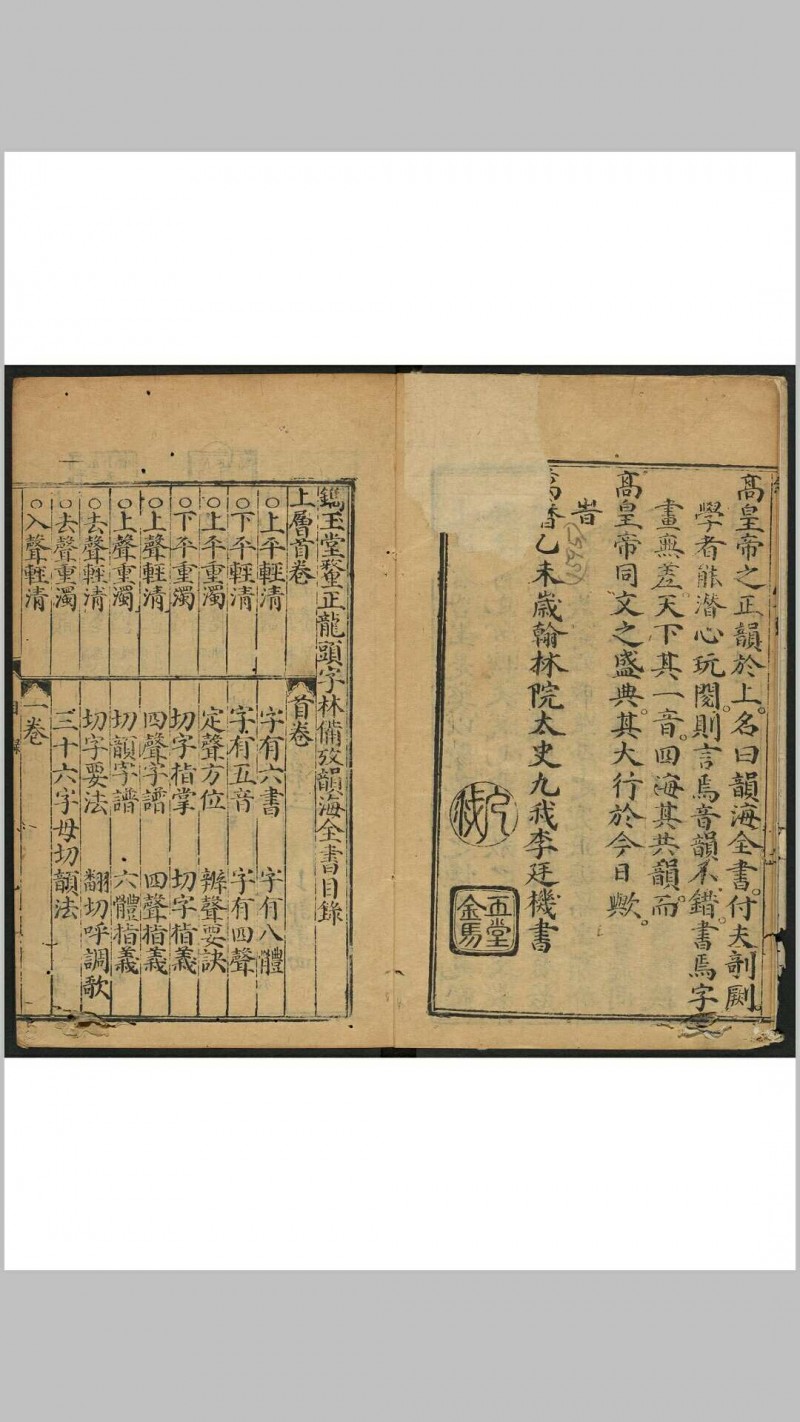 高皇帝之正韻於上名曰韻海全書付夫剞劂
學者能潛心玩閱則言焉音韻不錯書焉字
畫無差天下其一音四海其共韻而
高皇帝同文之盛典其大行於今日歟
旹
萬曆乙未歲翰林院太史九我李廷機書
(1595)
九我
玉堂金馬
鐫玉堂釐正龍頭字林備攷韻海全書目錄
上層首卷
○上平輕清
○下平輕清
○上平重濁
○下平重濁
○上聲輕清
○上聲重濁
○去聲輕清
○去聲重濁
○入聲輕清
首卷
字有六書 字有八體
字有五音 字有四聲
定聲方位 辨聲要訣
切字指掌 切字指義
四聲字譜 四聲指義
切韻字譜 六體指義
切字要法 翻切呼調歌
三十六字母切韻法
一卷